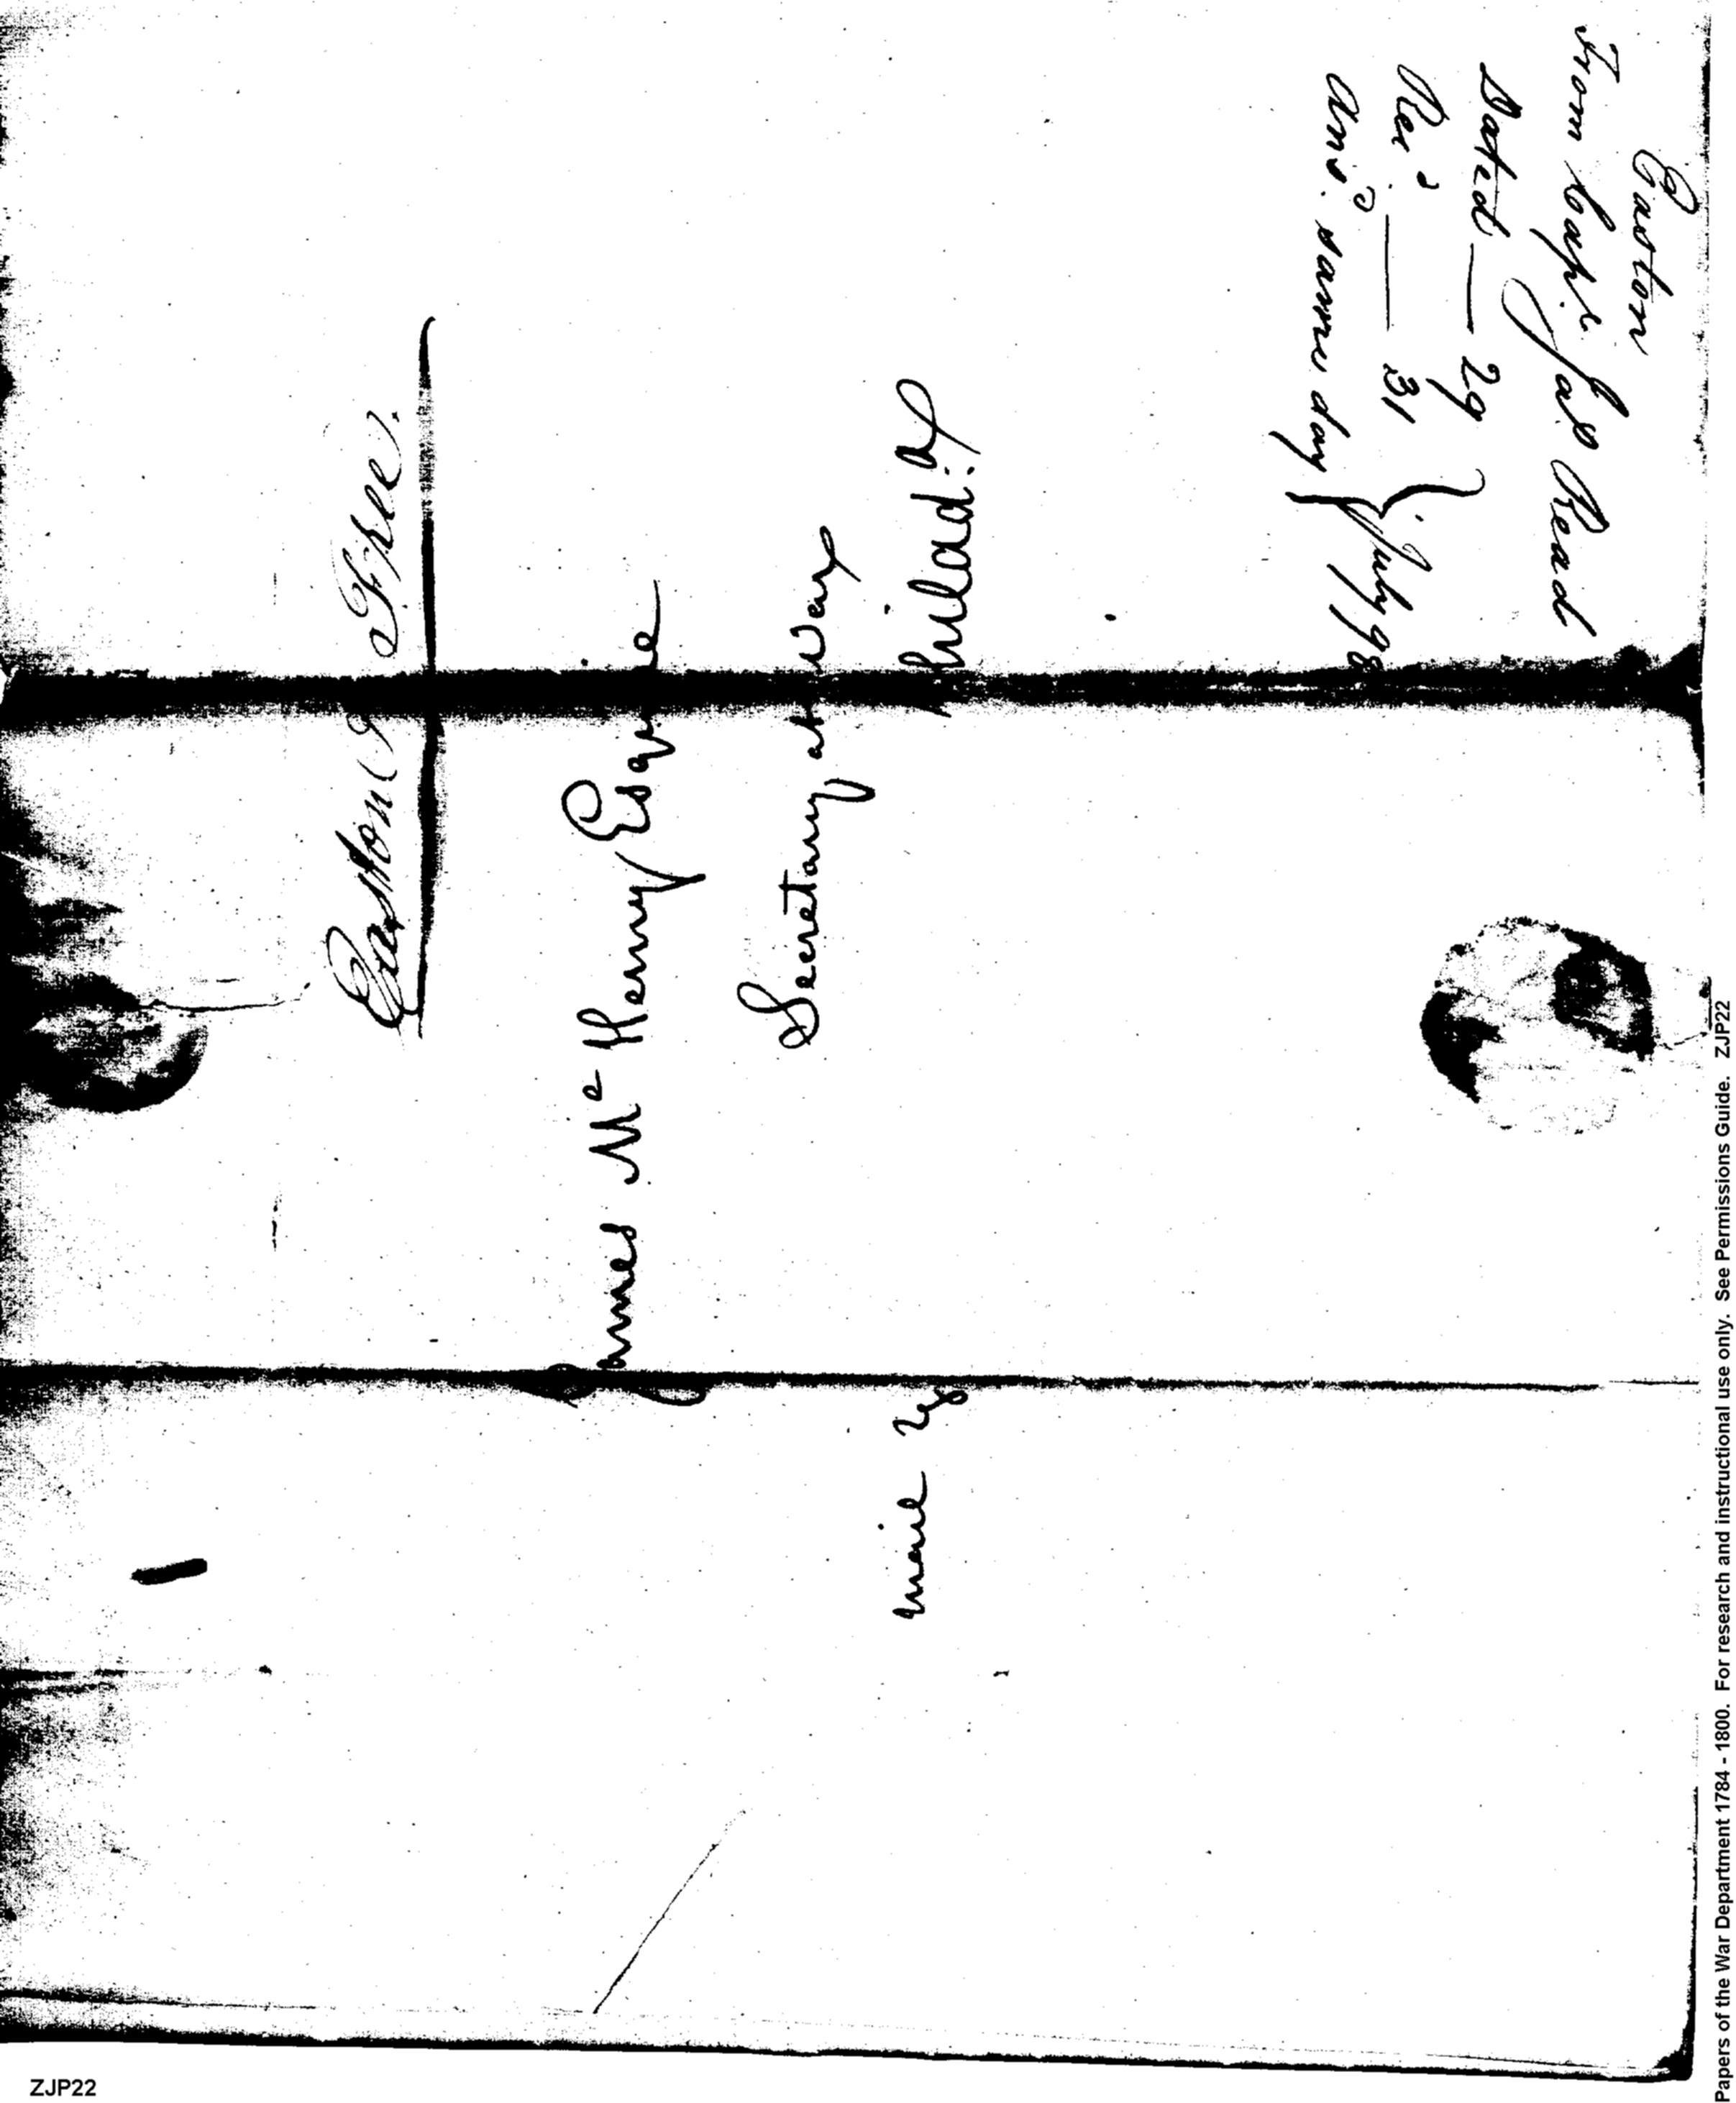 Easton
From Capt. Jas Read
Dated — 29
Rec.d — 31
Ans.d same day
July 98
Easton Free.
James Mc Henry Esquire
Secretary at War
Philad.a
mail
Papers of the War Department 1784 - 1800. For research and instructional use only. See Permissions Guide. ZJP22
ZJP22